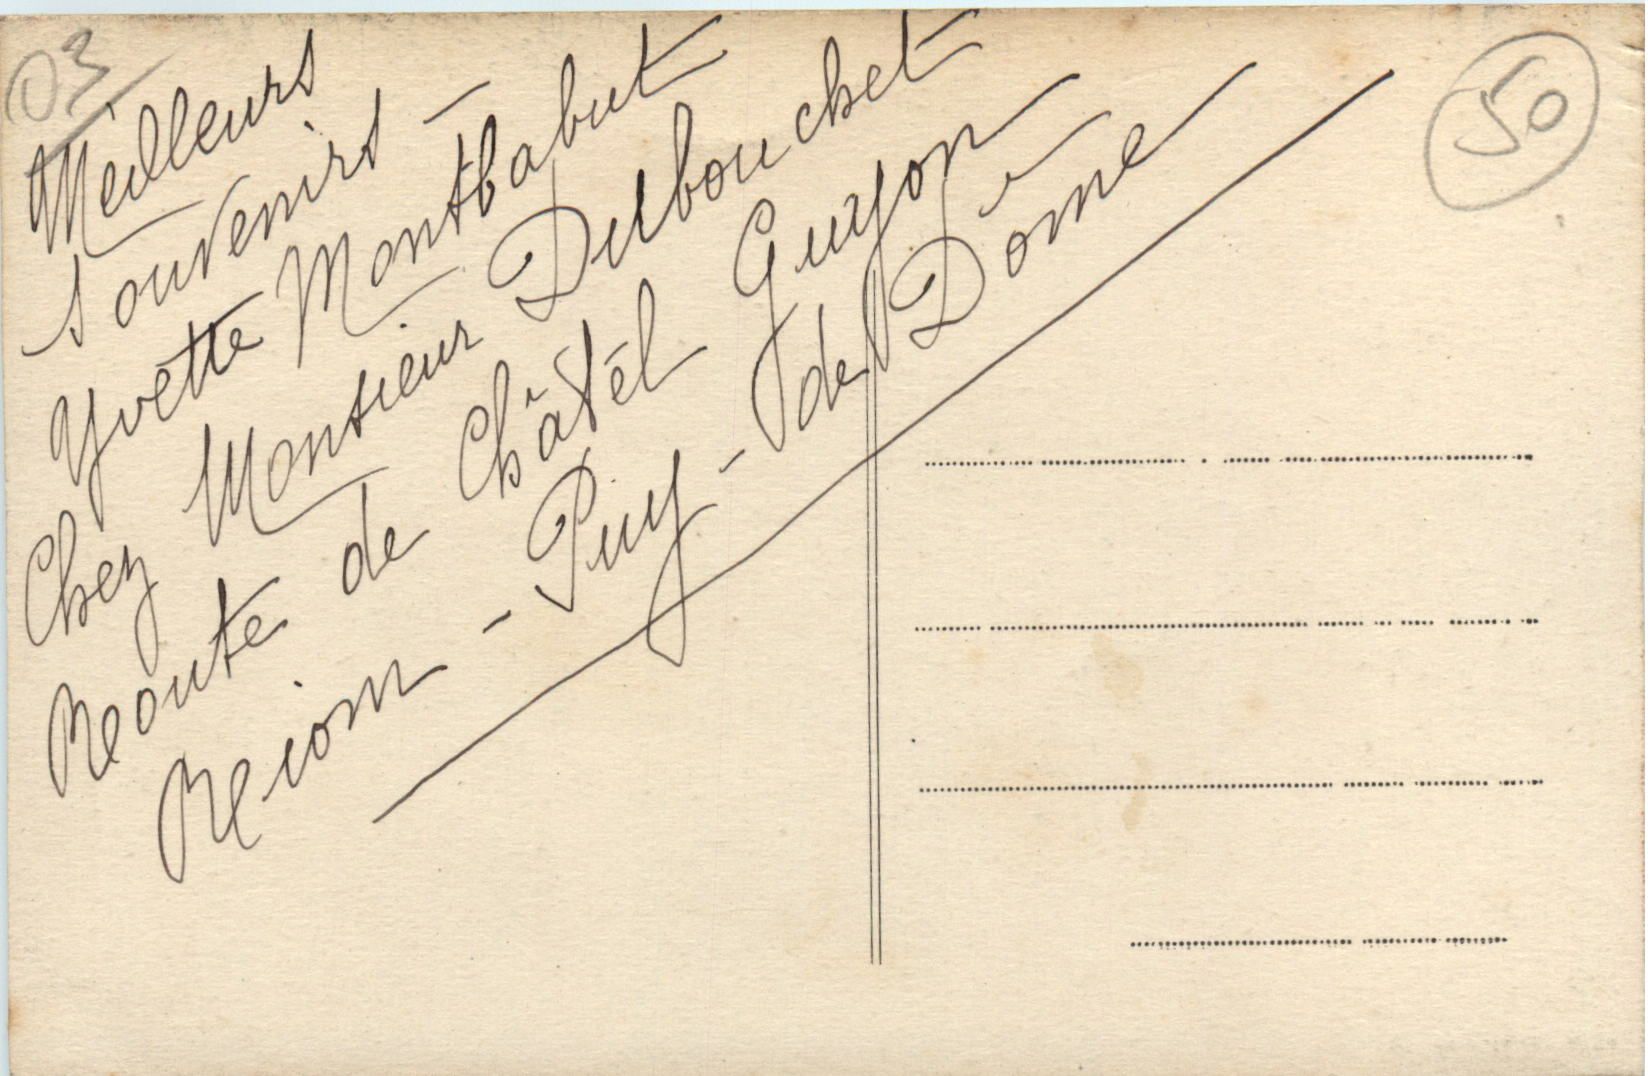 03
50
Meilleurs
souvenirs -
Yvette Montbabut
Chez Monsieur Dubouchet
Route de Châtel Guyon
Riom - Puy - de Dome